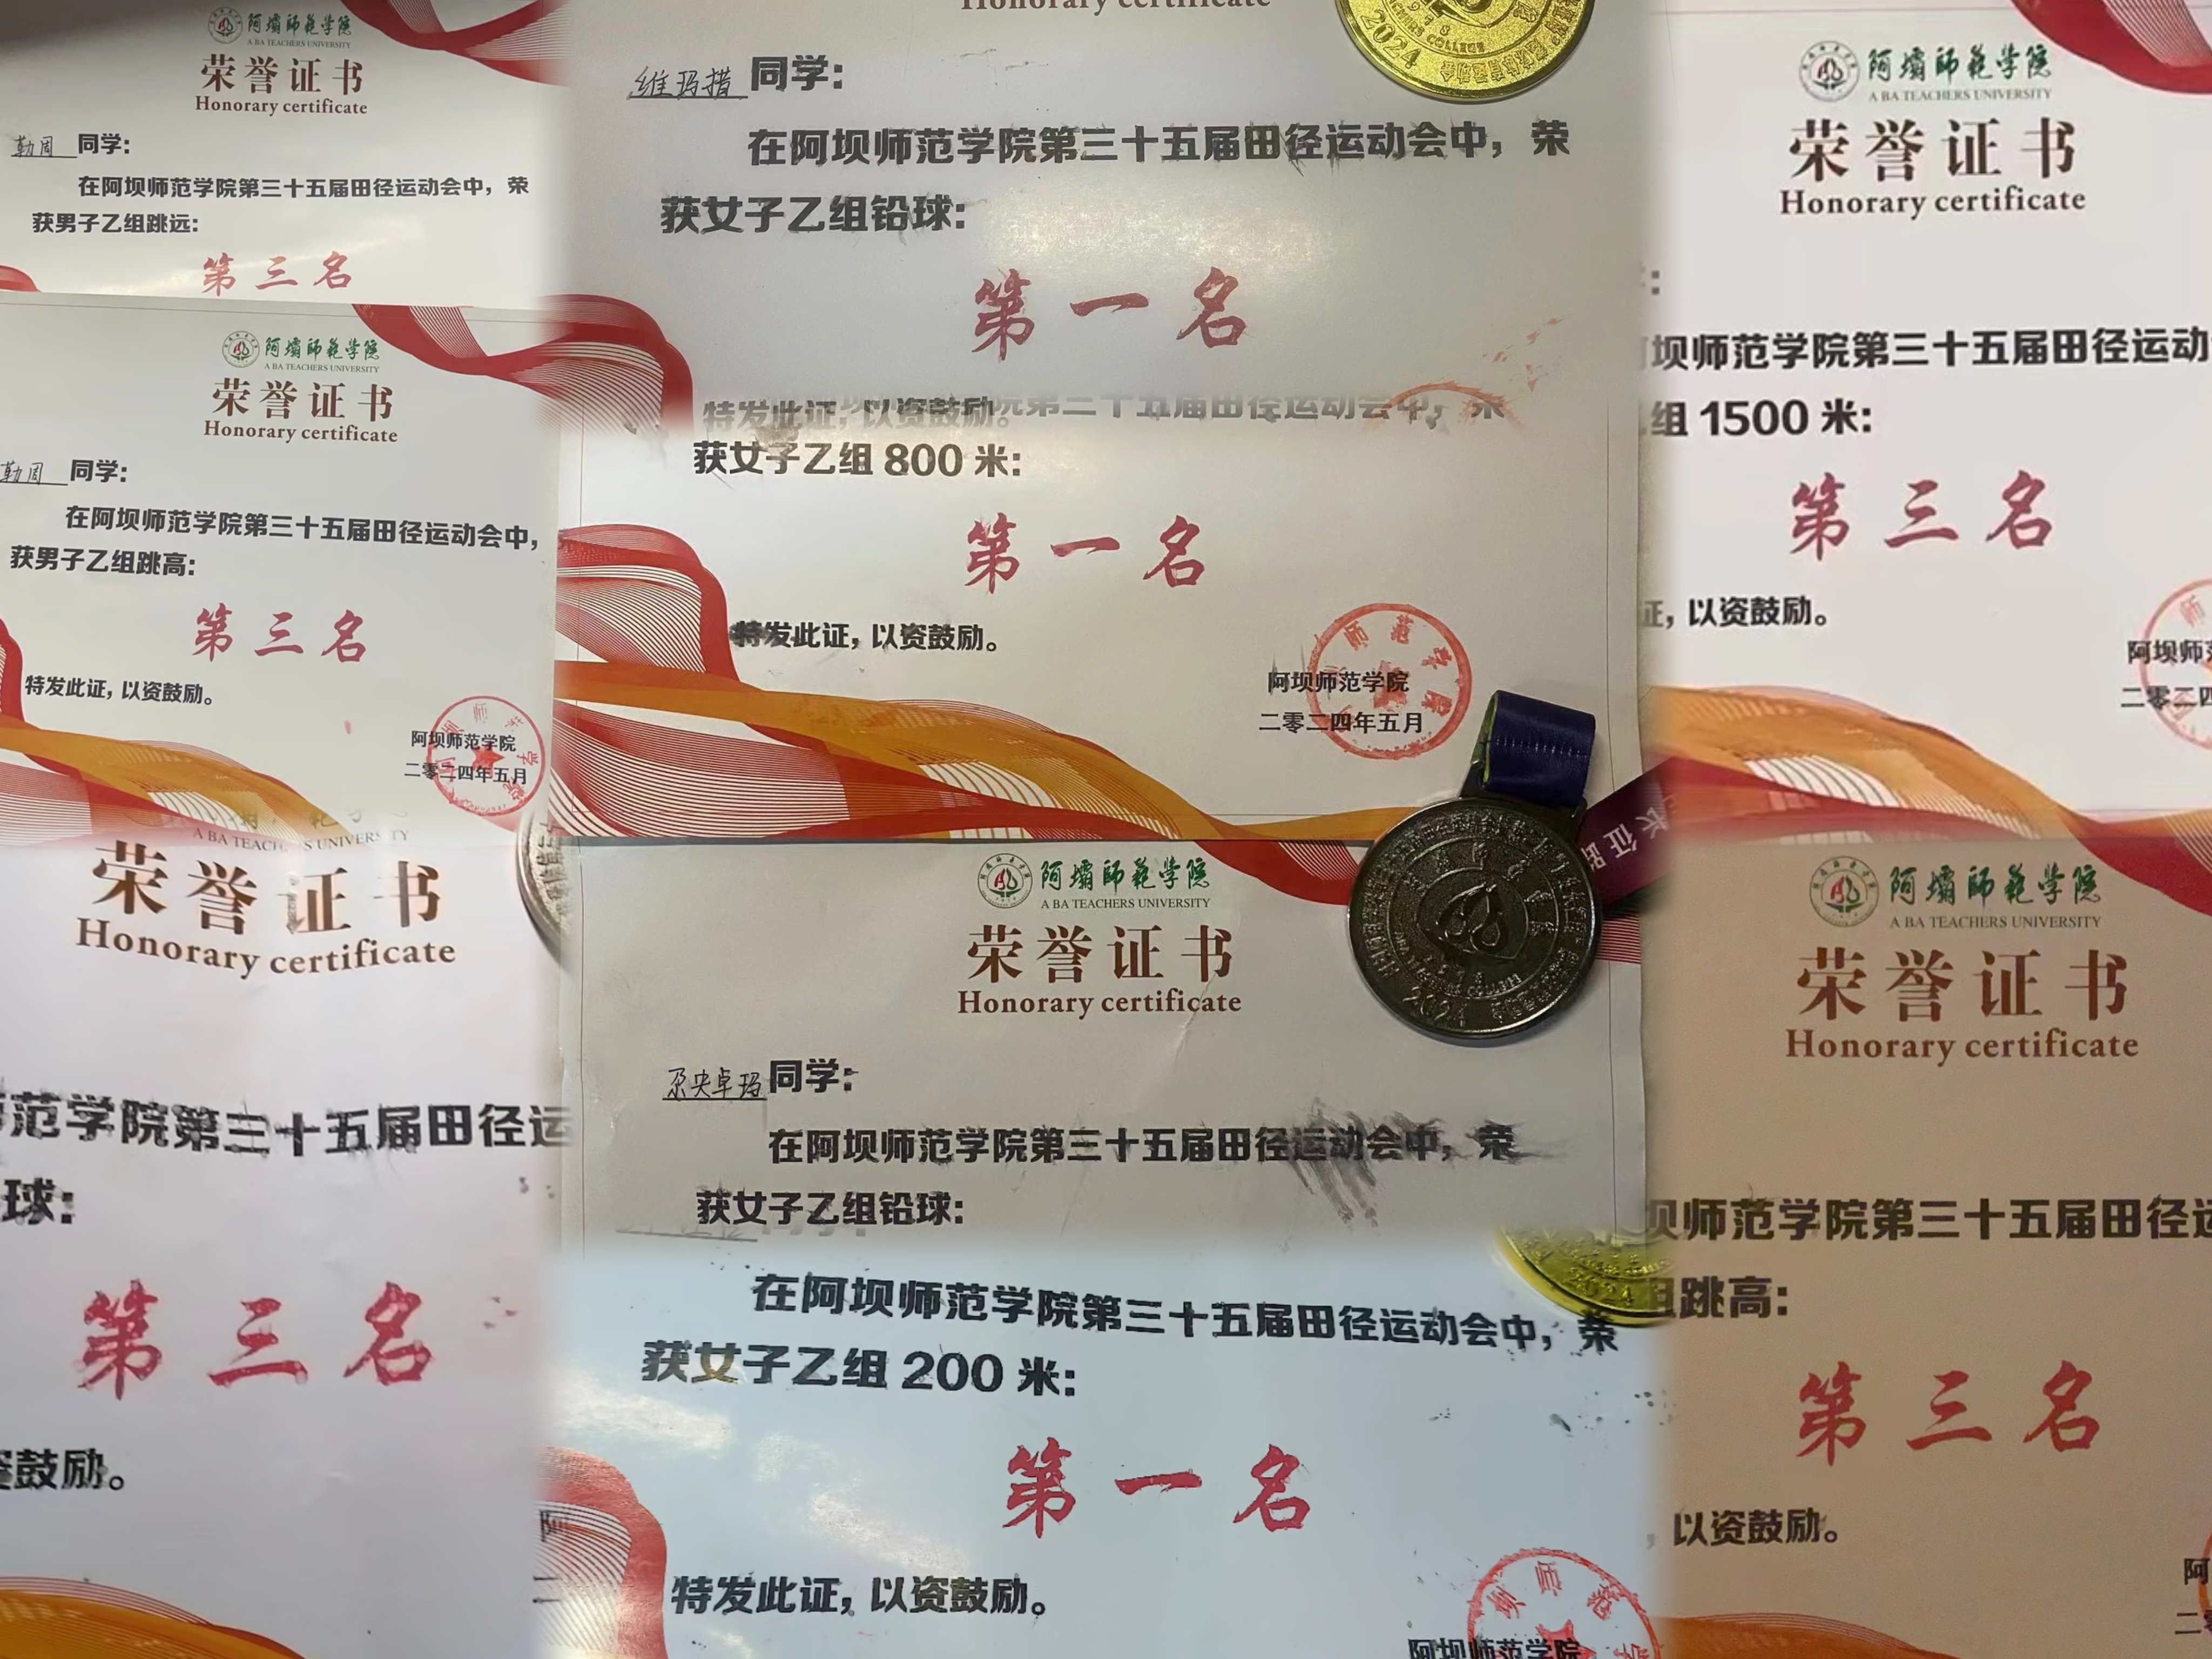 阿壩師範学院
A BA TEACHERS UNIVERSITY
荣誉证书
Honorary certificate
勒周 同学:
在阿坝师范学院第三十五届田径运动会中，荣
获男子乙组跳远:
第三名
阿壩師範学院
A BA TEACHERS UNIVERSITY
荣誉证书
Honorary certificate
勒周 同学:
在阿坝师范学院第三十五届田径运动会中,
获男子乙组跳高:
第三名
特发此证, 以资鼓励。
阿坝师范学院
二零二四年五月
A BA TEACHERS UNIVERSITY
荣誉证书
Honorary certificate
范学院第三十五届田径运
球:
第三名
鼓励。
Honorary certificate
2024
维玛措 同学:
在阿坝师范学院第三十五届田径运动会中，荣
获女子乙组铅球:
第一名
特发此证, 以资鼓励。
院第三十五届田径运动会中，荣
获女子乙组 800 米:
第一名
特发此证, 以资鼓励。
阿坝师范学院
二零二四年五月
长征
阿壩師範学院
A BA TEACHERS UNIVERSITY
荣誉证书
Honorary certificate
2024
尕央卓玛 同学:
在阿坝师范学院第三十五届田径运动会中，荣
获女子乙组铅球:
2024
在阿坝师范学院第三十五届田径运动会中，荣
获女子乙组 200 米:
第一名
特发此证, 以资鼓励。
阿坝师范学院
阿壩師範学院
A BA TEACHERS UNIVERSITY
荣誉证书
Honorary certificate
坝师范学院第三十五届田径运动
组 1500 米:
第三名
证, 以资鼓励。
阿坝师范
二零二四
阿壩師範学院
A BA TEACHERS UNIVERSITY
荣誉证书
Honorary certificate
坝师范学院第三十五届田径运
组跳高:
第三名
以资鼓励。
阿
二零